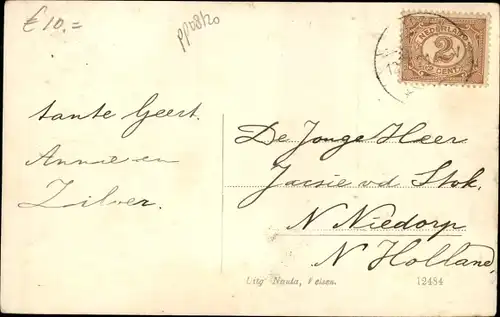 € 10.=
pp08120
NEDERLAND
2
CENT
tante Geert.
Annie en
Zilver.
De Jonge Heer
Jacsie vd Stok.
N Niedorp
N Holland
Uitg Nauta, Velsen.
12484